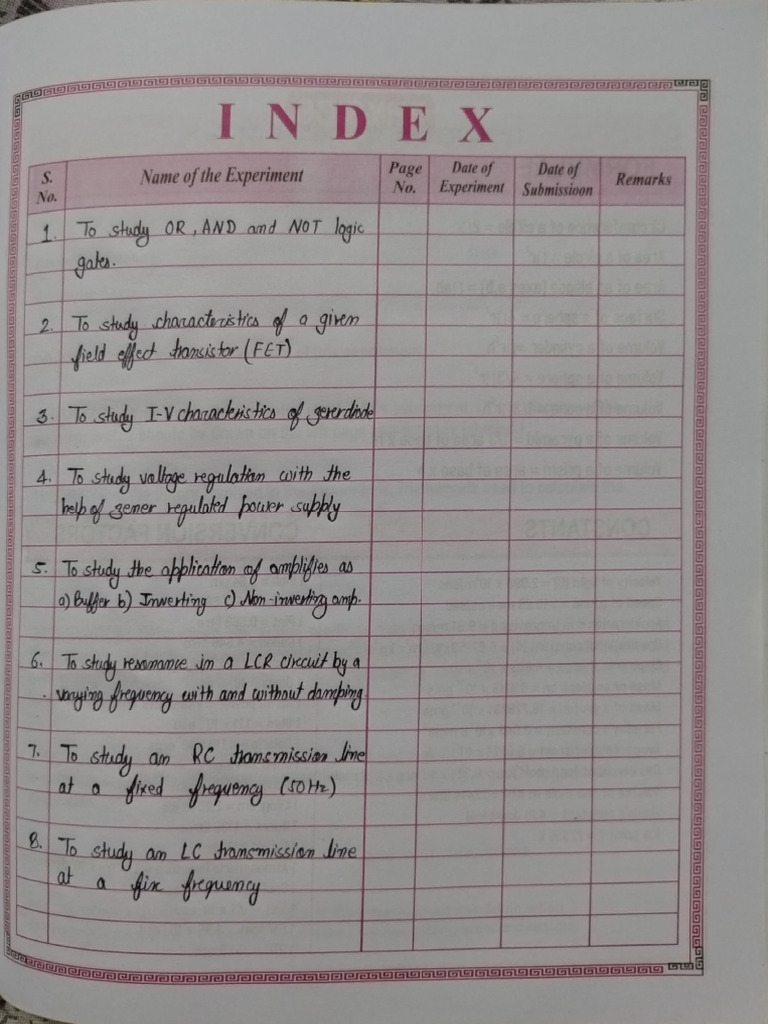 INDEX
S. No.
Name of the Experiment
Page No.
Date of Experiment
Date of Submissioon
Remarks
1. To study OR, AND and NOT logic
gates.
2. To study characteristics of a given
field effect transistor (FET)
3. To study I-V characteristics of generdiode
4. To study voltage regulation with the
help of zener regulated power supply
5. To study the application of amplifies as
a) Buffer b) Inverting c) Non-inverting amp.
6. To study resonance in a LCR circuit by a
varying frequency with and without damping
7. To study an RC transmission line
at a fixed frequency (50Hz)
8. To study an LC transmission line
at a fix frequency
CONSTANTS
CONVERSION FACTORS